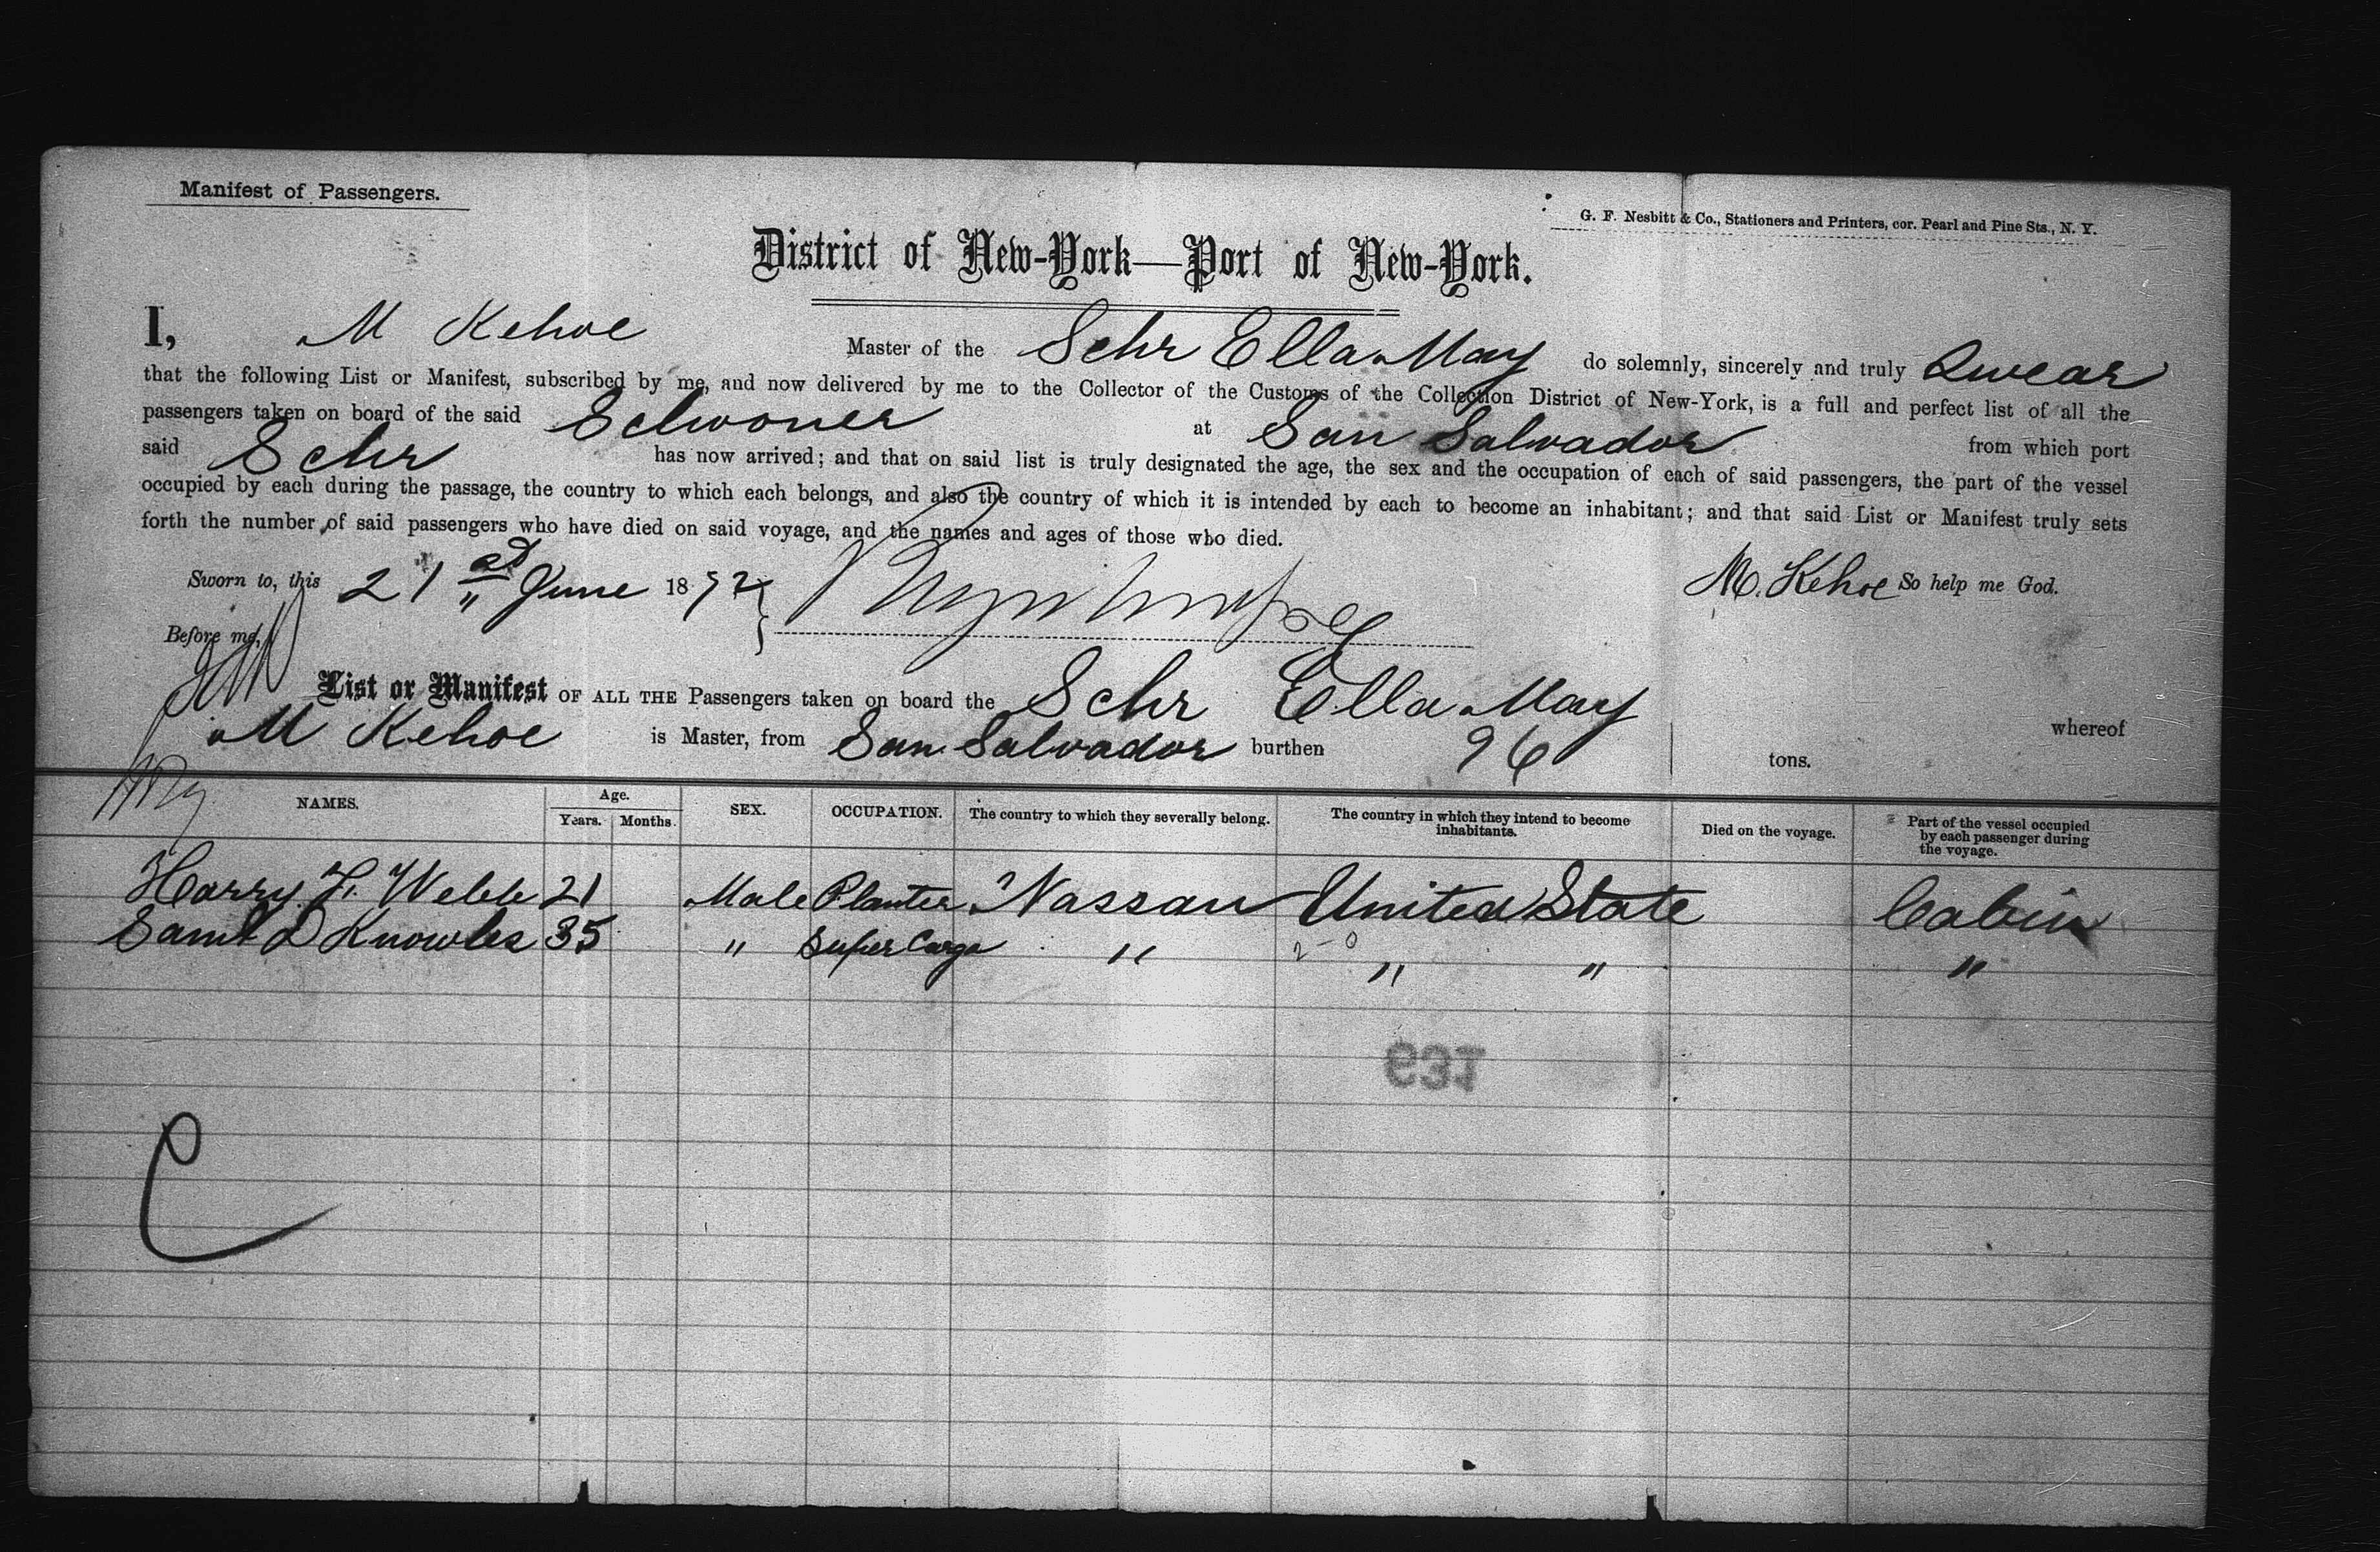 Manifest of Passengers.
G. F. Nesbitt & Co., Stationers and Printers, cor. Pearl and Pine Sts., N. Y.
District of New-York—Port of New-York.
I, M Kehoe Master of the Schr Ella May do solemnly, sincerely and truly Swear
that the following List or Manifest, subscribed by me, and now delivered by me to the Collector of the Customs of the Collection District of New-York, is a full and perfect list of all the
passengers taken on board of the said Schooner at San Salvador from which port
said Schr has now arrived; and that on said list is truly designated the age, the sex and the occupation of each of said passengers, the part of the vessel
occupied by each during the passage, the country to which each belongs, and also the country of which it is intended by each to become an inhabitant; and that said List or Manifest truly sets
forth the number of said passengers who have died on said voyage, and the names and ages of those who died.
Sworn to, this 21st June 1892 M. Kehoe So help me God.
Before me,
List or Manifest OF ALL THE Passengers taken on board the Schr Ella May whereof
M Kehoe is Master, from San Salvador burthen 96 tons.
NAMES. Age. Years. Months. SEX. OCCUPATION. The country to which they severally belong. The country in which they intend to become inhabitants. Died on the voyage. Part of the vessel occupied by each passenger during the voyage.
Harry F. Webb 21 Male Planter Nassau United State Cabin
Saml D Knowles 35 " Super Cargo " " " "
2-0
631
C